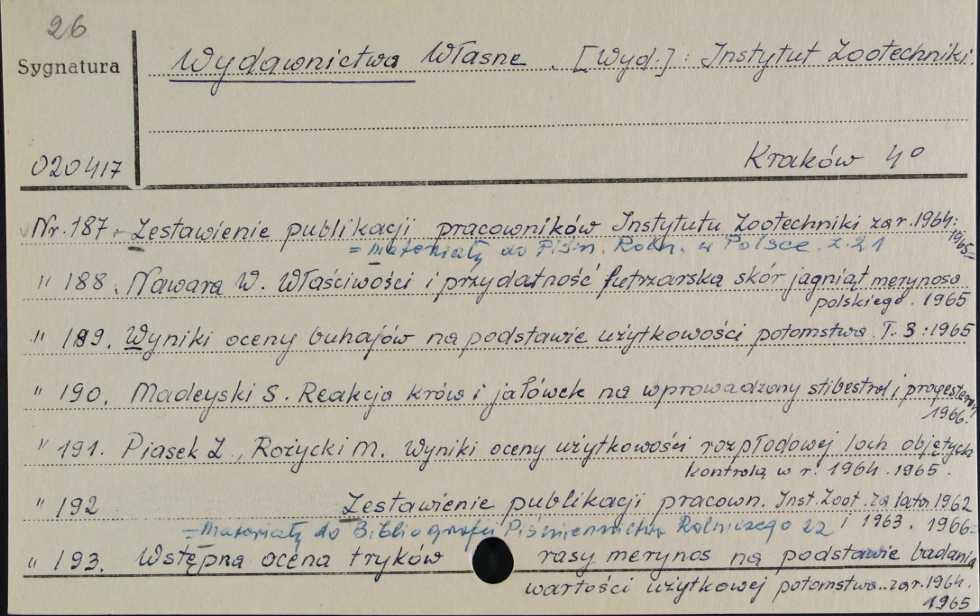 26
Sygnatura
Wydawnictwa Własne . [Wyd.] : Instytut Zootechniki.
020417
Kraków 4°
Nr. 187 - Zestawienie publikacji pracowników Instytutu Zootechniki za r. 1964.
1965
= materiały do Piśm. Roln. w Polsce z. 21
" 188. Nawara W. Właściwości i przydatność futrzarska skór jagniąt merynosa
polskiego. 1965
" 189. Wyniki oceny buhajów na podstawie użytkowości potomstwa. T. 3 : 1965
" 190. Madeyski S. Reakcja krów i jałówek na wprowadzony stibestrol i progesteron
1966.
" 191. Piasek Z., Rożycki M. Wyniki oceny użytkowości rozpłodowej loch objętych
kontrolą w r. 1964. 1965.
" 192 Zestawienie publikacji pracown. Inst. Zoot. za lata 1962
i 1963. 1966.
= Materiały do Bibliografii Piśmiennictwa Rolniczego 22
" 193. Wstępna ocena tryków rasy merynos na podstawie badania
wartości użytkowej potomstwa.. za r. 1964.
1965